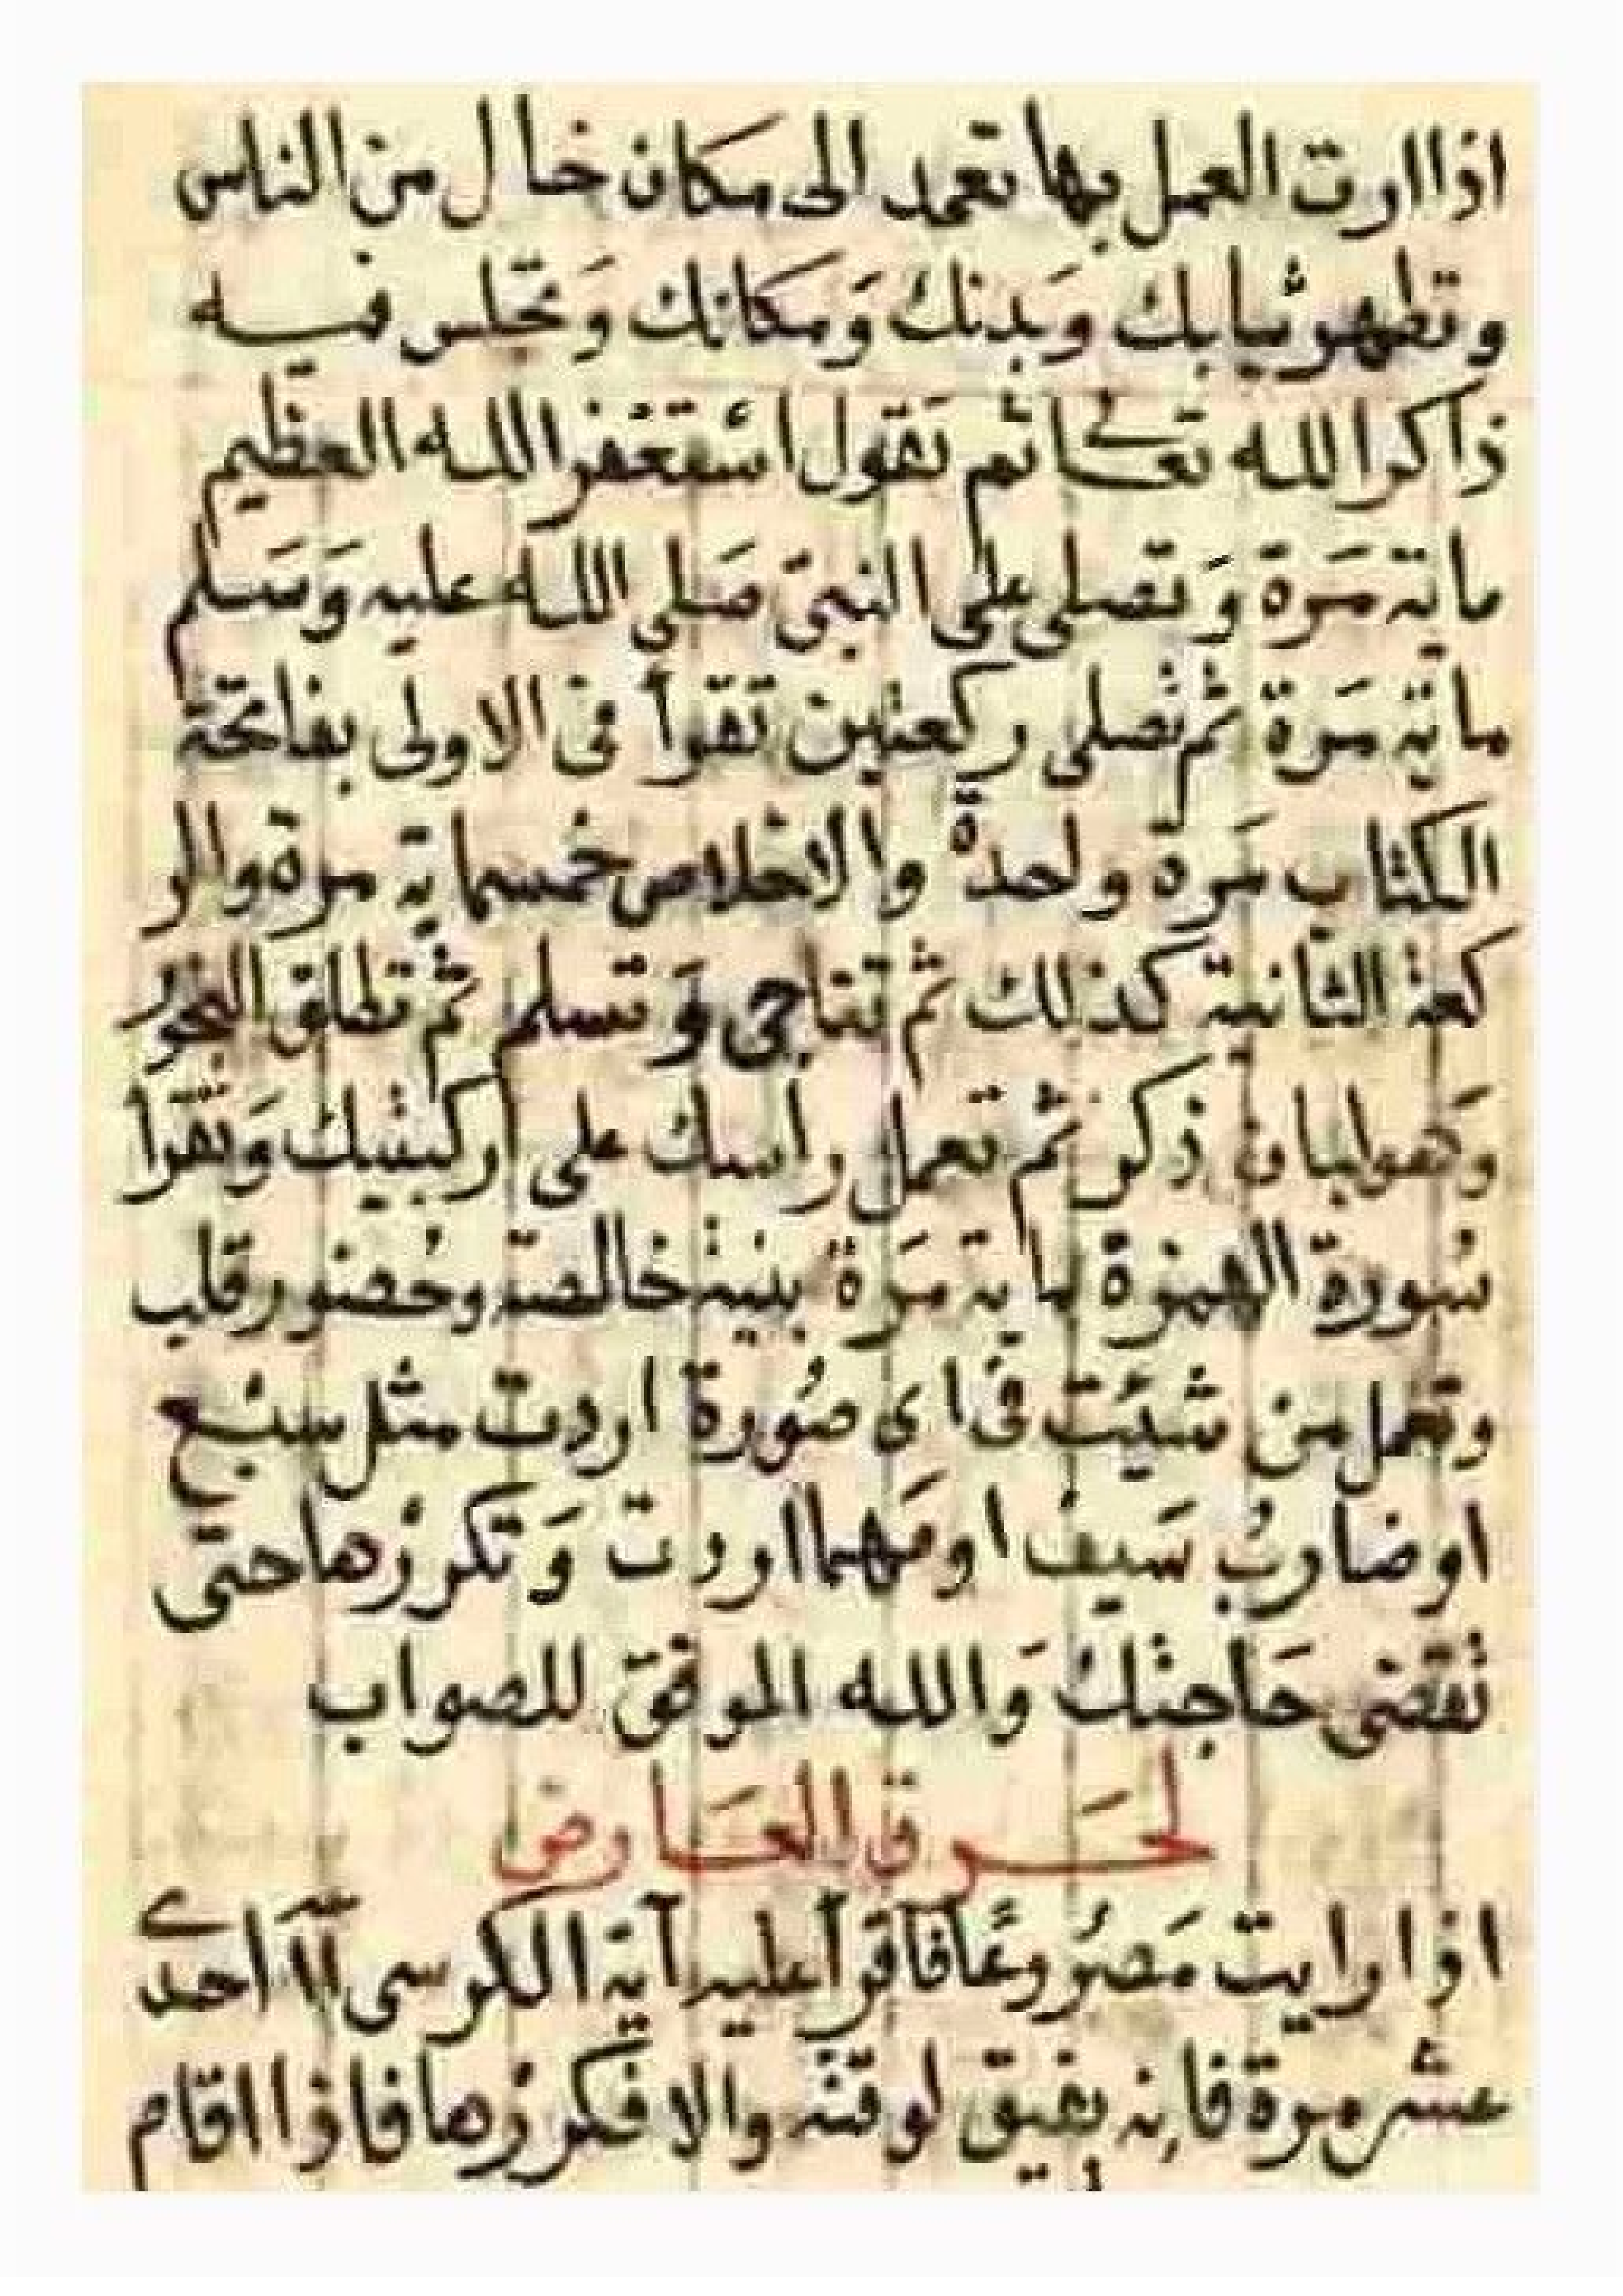 اذا اردت العمل بها تعمد الى مكان خال من الناس
وتطهر ثيابك وَبدنك وَمكانك وَتجلس فيه
ذاكرا لله تعالى ثم تقول استغفر الله العظيم
ماية مَرة وَتصلى على النبىّ صَلى الله عليه وَسَلم
ماية مَرة ثم تصلى ركعتين تقرأ فى الاولى بفاتحة
الكتاب مَرة واحدة والاخلاص خمسماية مرة والر
كعة الثانية كذلك ثم تناجى وَتسلم ثم تطلق البخور
وَهو لبان ذكر ثم تعمل راسك على ركبتيك وَتقرأ
سُورة الهمزة ماية مَرة بنية خالصة وحُضور قلب
وتعمل من شئت فى اى صُورة اردت مثل سبُع
او ضارب سَيف او مَهما اردت وَتكررها حتى
تقضى حَاجتك وَالله الموفق للصواب
لحَرق العَارض
اذا رايت مَصرُوعًا فاقرأ عليه آية الكرسى احدى
عشر مرة فانه يفيق لوقته والا فكررها فاذا اقام